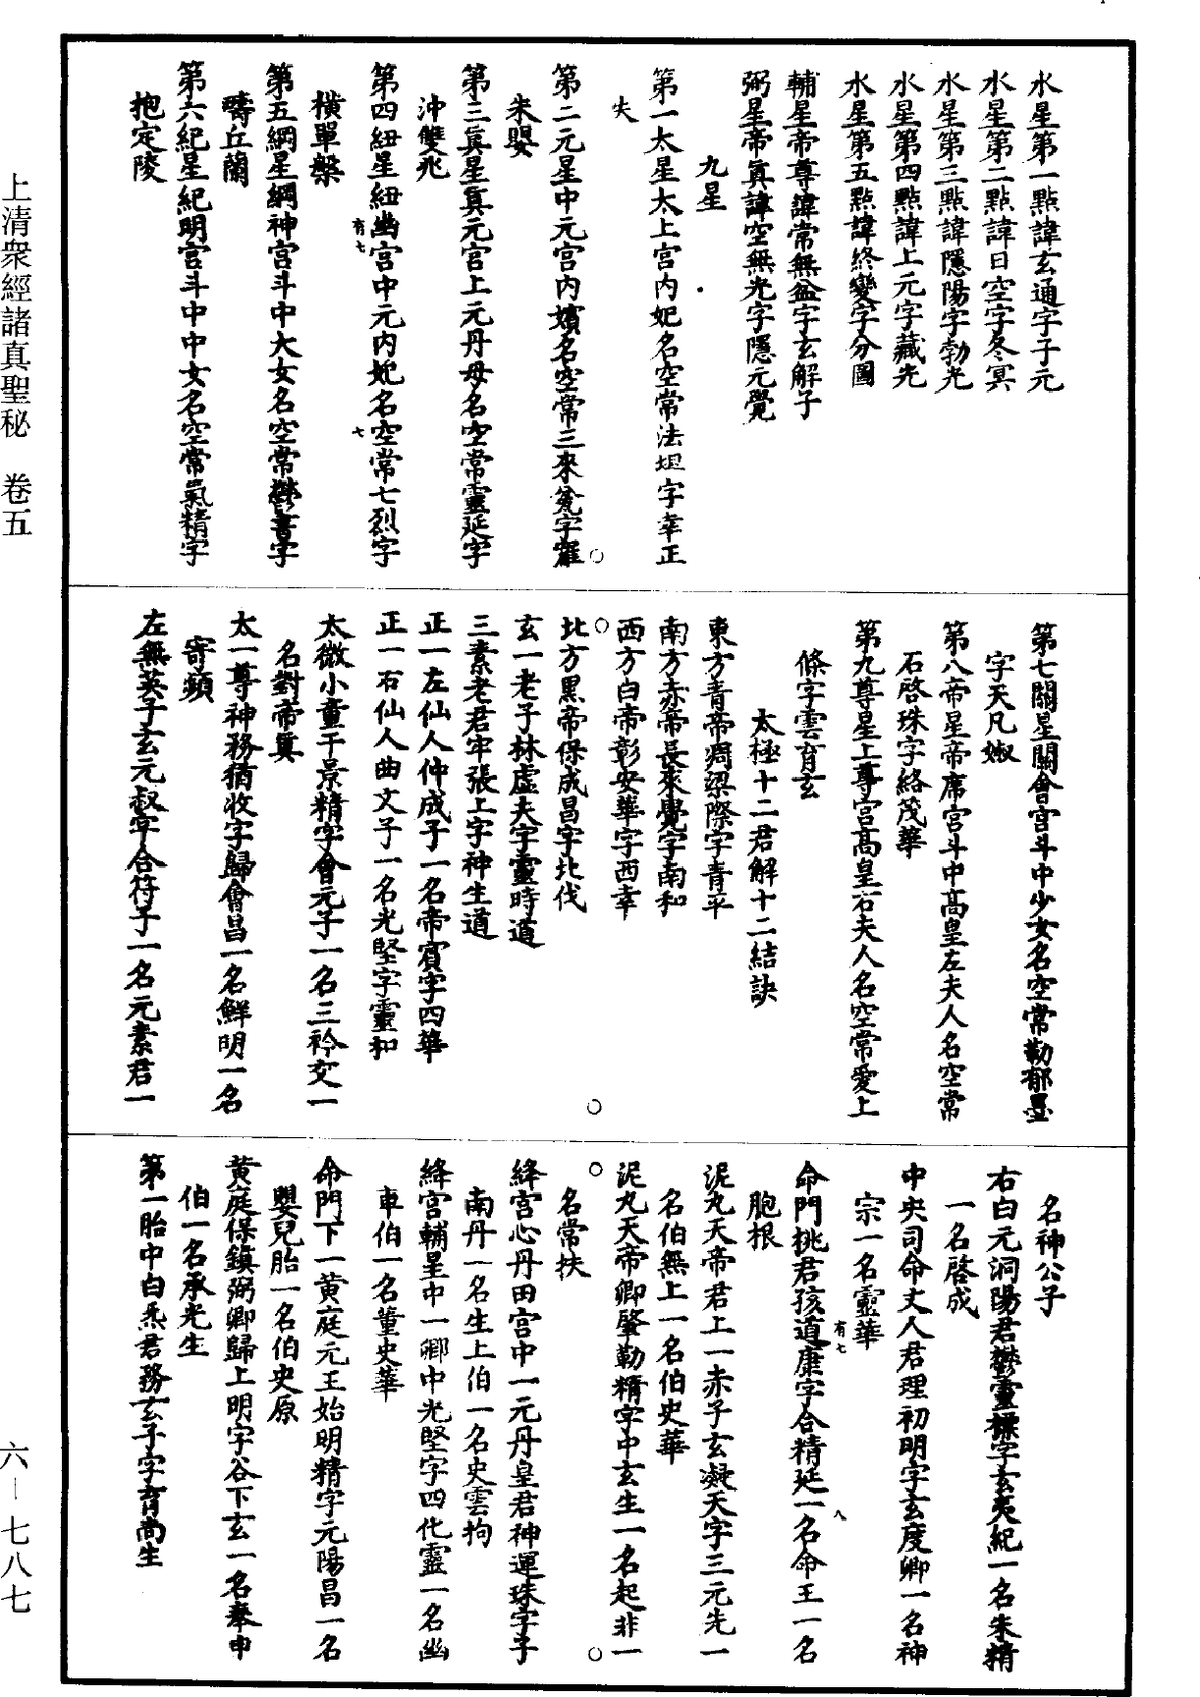 水星第一點諱玄通字子元
水星第二點諱日空字冬冥
水星第三點諱隱陽字勃光
水星第四點諱上元字藏光
水星第五點諱終變字分圖
輔星帝尊諱常無盆字玄解子
弼星帝真諱空無光字隱元覺
九星
第一太星太上宮内妃名空常法坦字幸正
夫
第二元星中元宮内嬪名空常三來 字
未嬰
第三真星真元宮上元丹母名空常靈延字
沖雙兆
第四紐星紐幽宮中元内妃名空常七烈字
有七
七
橫單槃
第五綱星綱神宮斗中大女名空常 字
疇丘蘭
第六紀星紀明宮斗中中女名空常氣精字
抱定陵
第七關星關會宮斗中少女名空常勒郁墨
字天凡婌
第八帝星帝席宮斗中高皇左夫人名空常
石啓珠字絡茂華
第九尊星上尊宮高皇右夫人名空常愛上
條字雲育玄
太極十二君解十二結訣
東方青帝凋梁際字青平
南方赤帝長來覺字南和
西方白帝彰安華字西幸
北方黑帝保成昌字北伐
玄一老子林虛夫字靈時道
三素老君牢張上字神生道
正一左仙人仲成子一名帝賓字四華
正一右仙人曲文子一名光堅字靈和
太微小童干景精字會元子一名三衿交一
名對帝真
太一尊神務猶收字歸會昌一名鮮明一名
寄頻
左無英子玄元叔字合符子一名元素君一
名神公子
右白元洞陽君鬱靈標字玄夷紀一名朱精
一名啓成
中央司命丈人君理初明字玄度卿一名神
宗一名靈華
命門桃君孩道康字合精延一名命王一名
有七
八
胞根
泥丸天帝君上一赤子玄凝天字三元先一
名伯無上一名伯史華
泥丸天帝卿肇勒精字中玄生一名起非一
名常扶
絳宮心丹田宮中一元丹皇君神運珠字子
南丹一名生上伯一名史雲拘
絳宮輔星中一卿中光堅字四化靈一名幽
車伯一名董史華
命門下一黃庭元王始明精字元陽昌一名
嬰兒胎一名伯史原
黃庭保鎮弼卿歸上明字谷下玄一名奉申
伯一名承光生
第一胎中白炁君務玄子字育尚生
上清衆經諸真聖秘 卷五
六—七八七